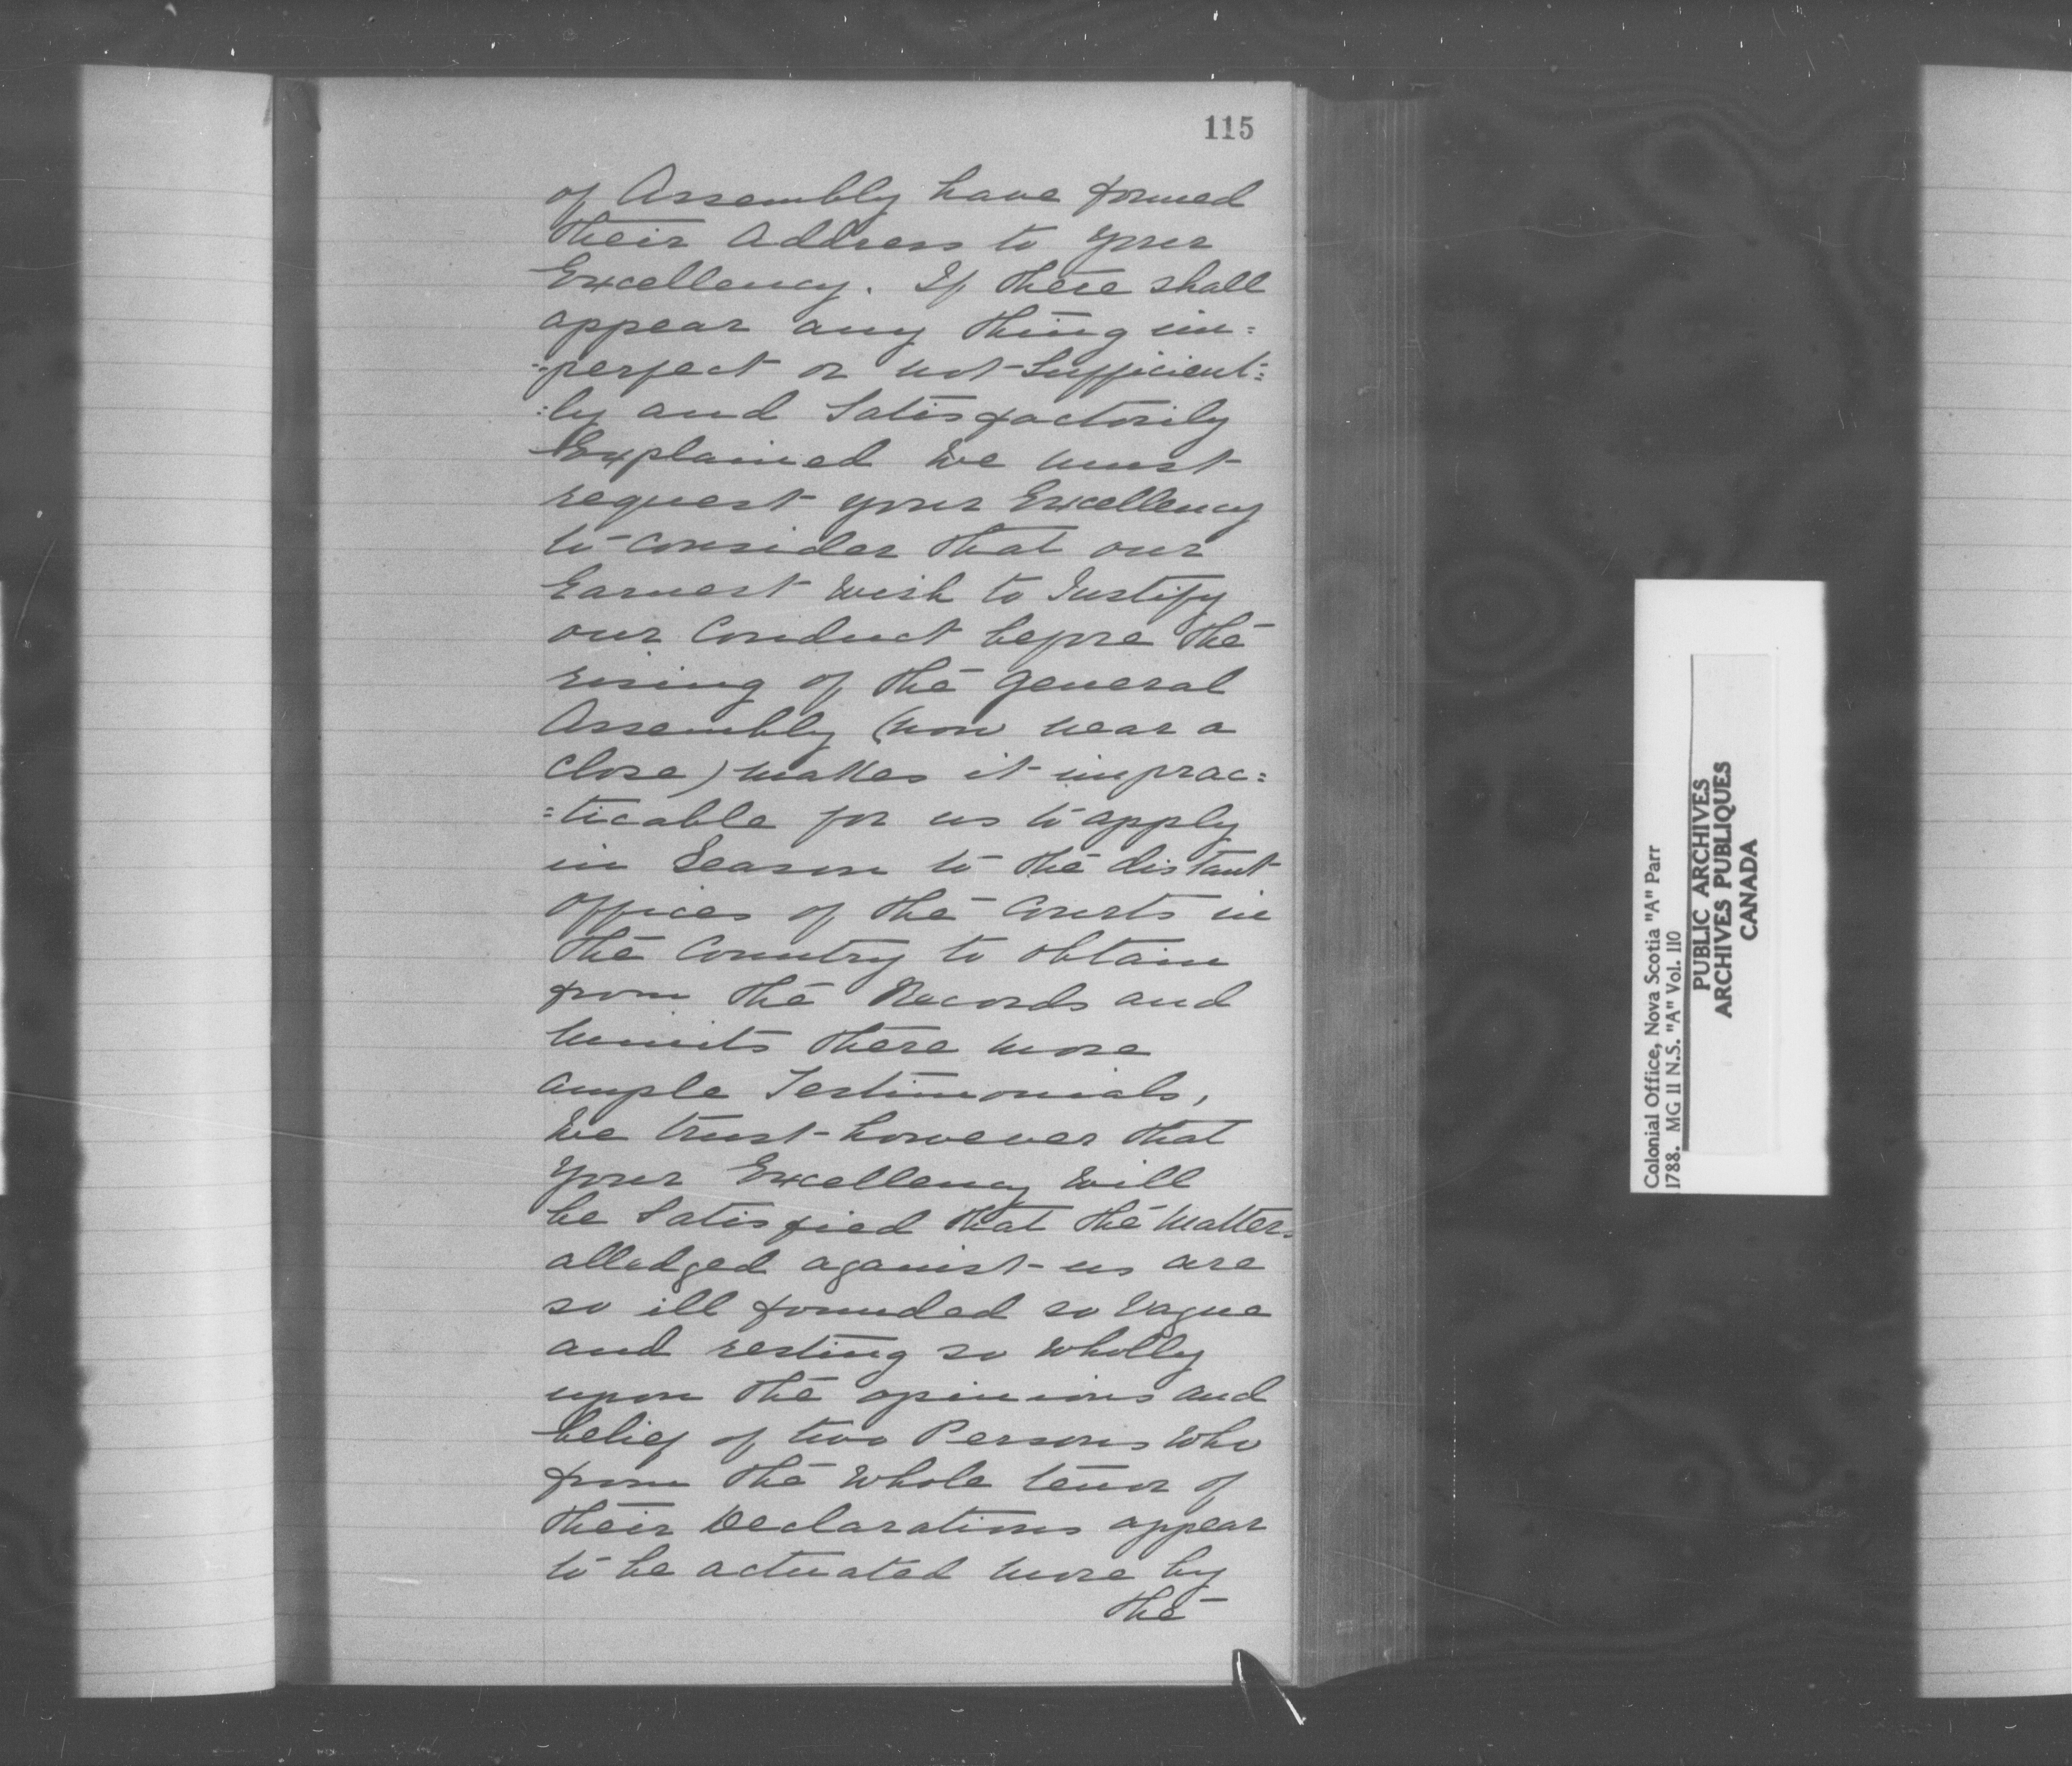 115
of Assembly have formed
their Address to your
Excellency. If there shall
appear any thing im=
=perfect or not Sufficient=
=ly and Satisfactorily
Explained we must
request your Excellency
to consider that our
Earnest wish to Justify
our Conduct before the
rising of the General
Assembly (now near a
close) makes it imprac=
=ticable for us to apply
in Season to the distant
offices of the Courts in
the Country to obtain
from the Records and
Minits there more
ample Testimonials,
We trust however that
Your Excellency will
be Satisfied that the Matters
alledged against us are
so ill founded so Vague
and resting so wholly
upon the opinions and
belief of two Persons who
from the whole tenor of
their Declarations appear
to be actuated more by
the
Colonial Office, Nova Scotia "A" Parr
1788. MG 11 N.S. "A" Vol. 110
PUBLIC ARCHIVES
ARCHIVES PUBLIQUES
CANADA